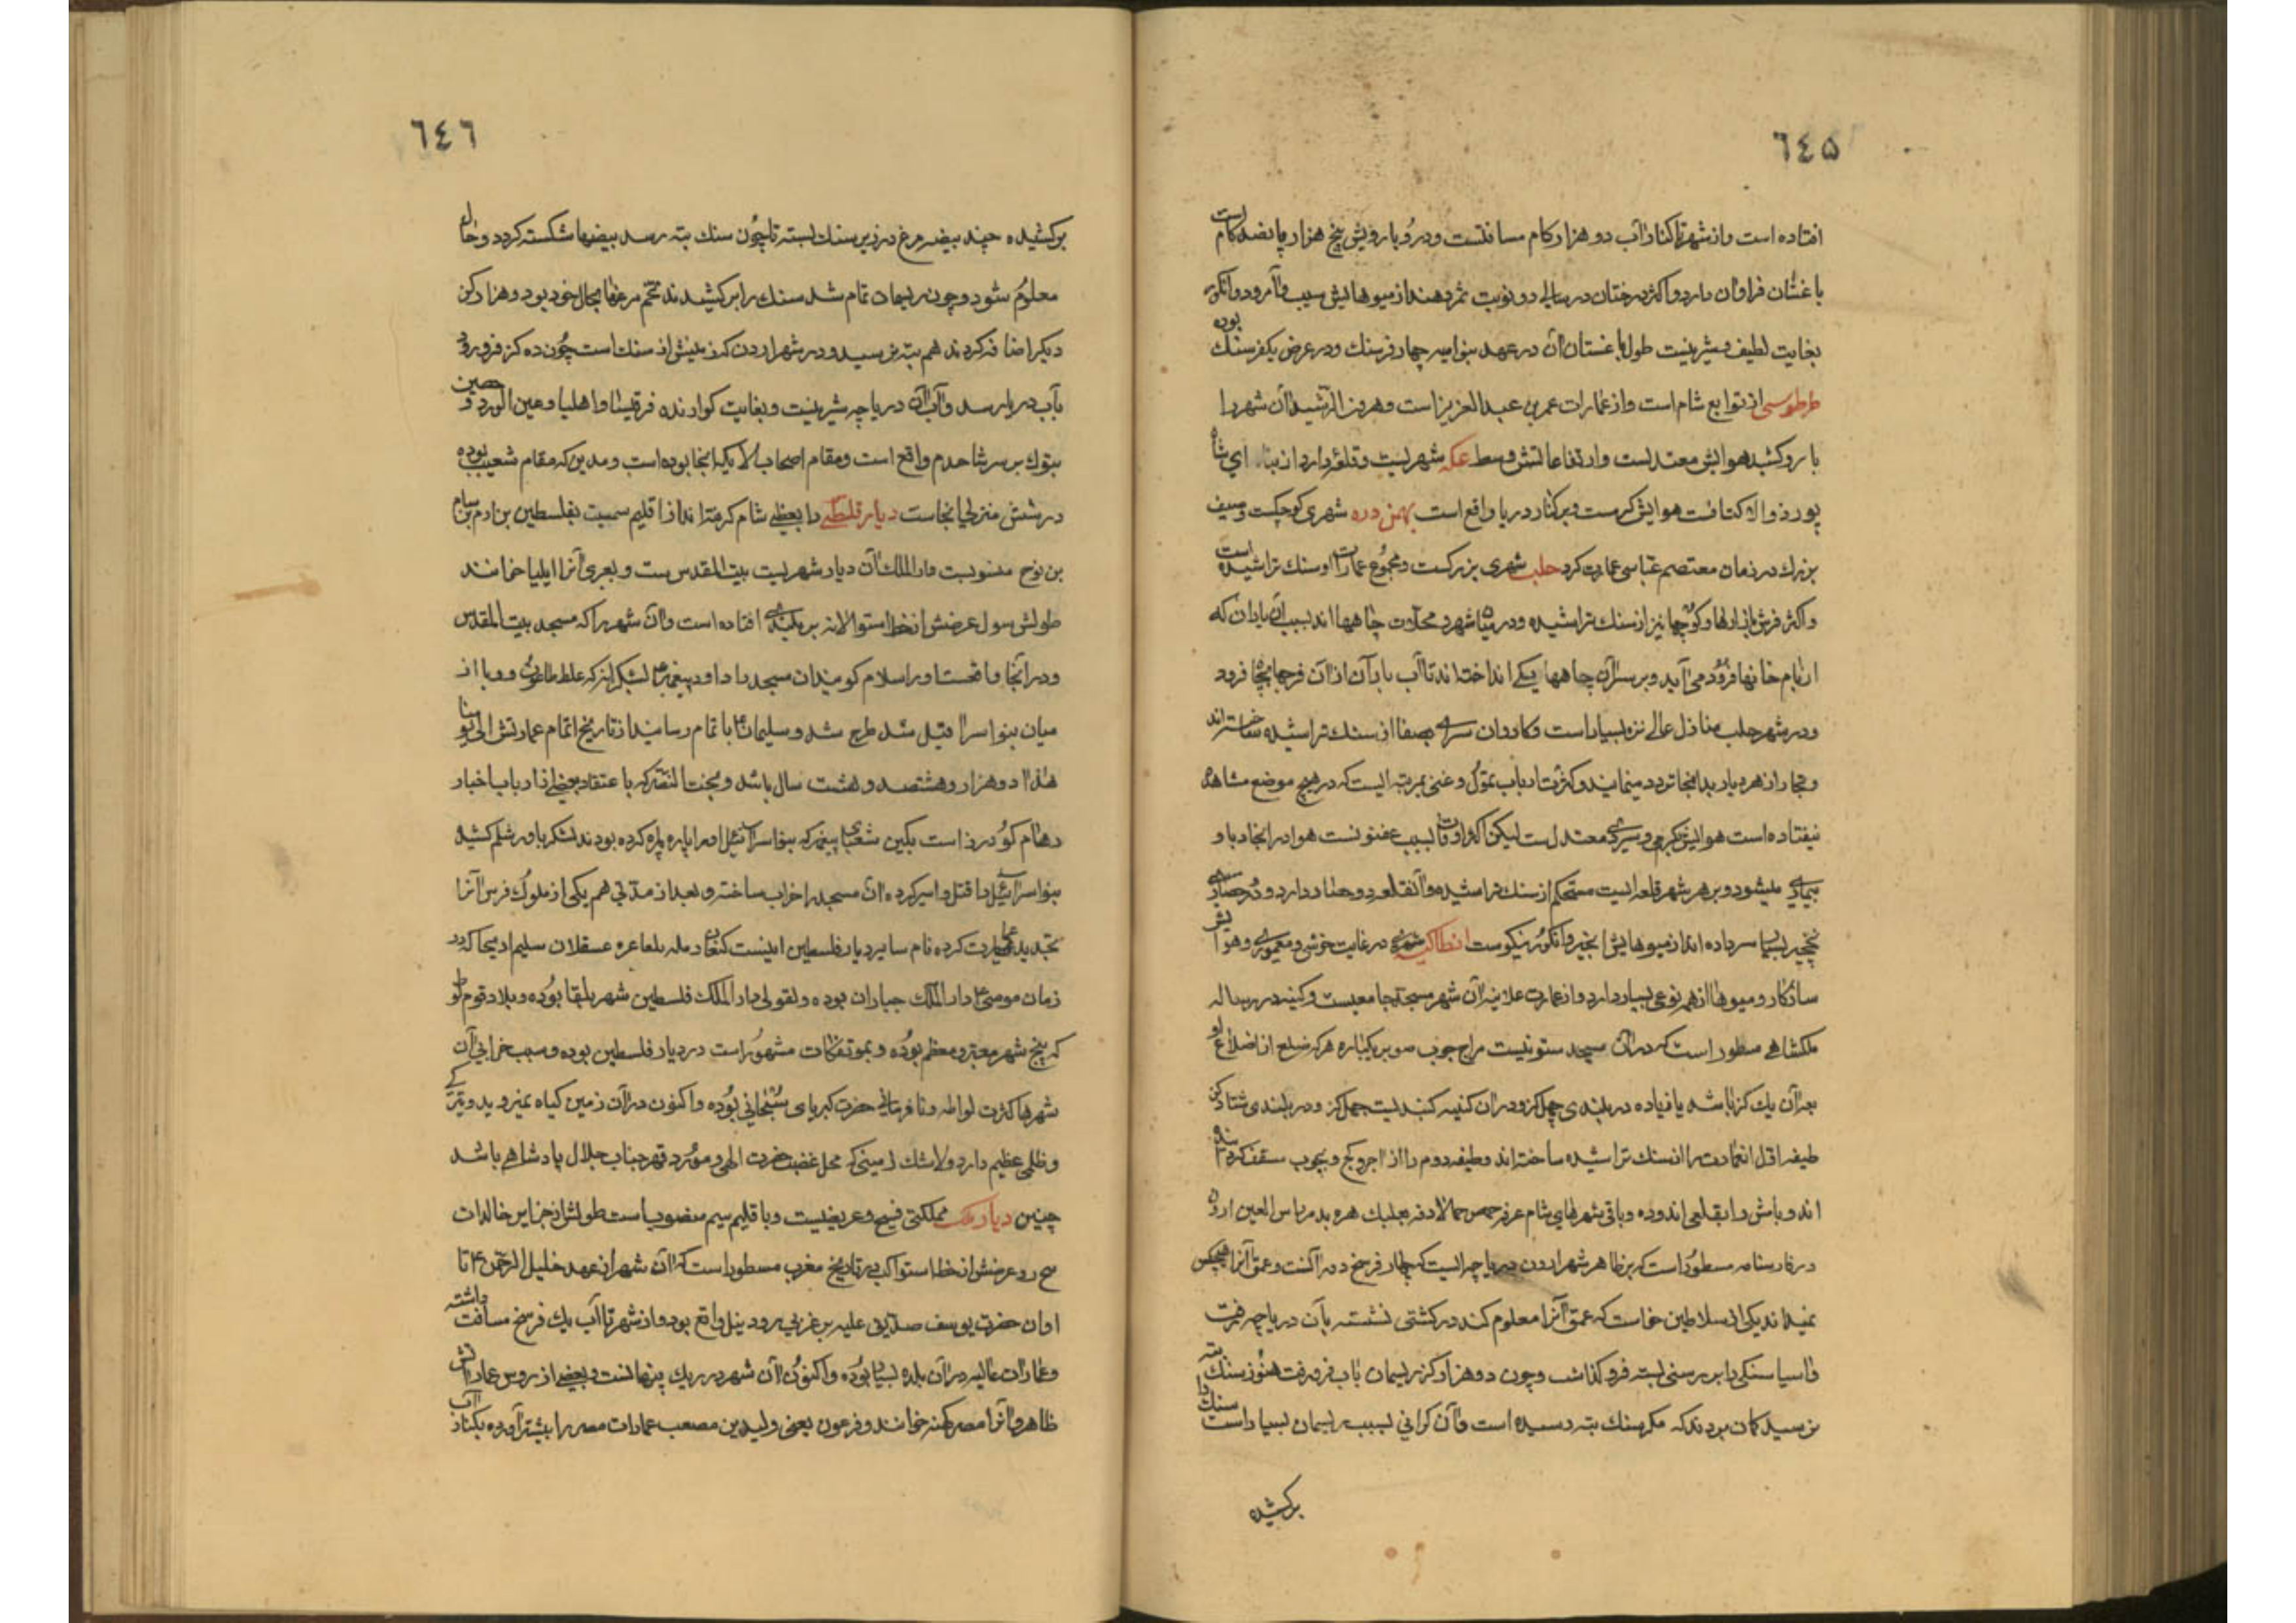 ٦٤٥
افتاده است و از شهر تا کنار آب دو هزار کام مسافتست و در و بارویش پنج هزار و پانصد کام است
باغستان فراوان دارد و اکثر درختان در سالی دو نوبت ثمر دهند از میوهایش سیب و آمرود و انکور
بغایت لطیف و شیرینست طول باغستان آن در عهد بنوامیه چهار فرسنک و در عرض یکفرسنک بوده
طرطوسی از توابع شام است و از عمارات عمر بن عبد العزیز است و هرون الرشید آن شهر را
بارو کشید هوایش معتدلست و ارتفاعاتش وسط عکه شهریست و قلعه دارد از بنای شاه
پور ذوالاکتافست هوایش کرمست و بر کنار دریا واقع است بهمن دره شهری کوچکست و مسجد
بزرک در زمان معتصم عباسی عمارت کرد حلب شهری بزرکست و مجموع عمارات او سنک تراشیده است
و اکثر فرش بازارها و کوچها نیز از سنک تراشیده و در میان شهر و محلات چاهها اند بسبب آن باران که
از بام خانها فرود می آید و بر سر آن چاهها یکی انداخته اند تا آب باران از آن فرجها بچاه فرود
و در شهر حلب منازل عالی نزه بسیار است و کاروان سرای بصفا از سنک تراشیده ساخته اند
و تجار از هر دیار بدانجا تردد مینمایند و کثرت ارباب تمول و غنی بمرتبه ایست که در هیچ موضع مشاهده
نیفتاده است هوایش بکرمی و سردی معتدل است لیکن اکثر اوقات بسبب عفونت هوا در انجا وبا و
بیماری میشود و بر هر شهر قلعه ایست مستحکم از سنک تراشیده و آنقلعه دو حصار دارد و در حصارش
نخجیر بسیار سر داده اند از میوهایش انجیر و انکور نیکوست انطاکیه شهری در غایت خوشی و معموری و هوایش
سازکار و میوها از هر نوعی بسیار دارد و از عمارت علانیه آن شهر مسجد جامعیست و کنیسه در رساله
ملکشاهی مسطور است که در آن مسجد ستونیست مربع چوب صوبر یکپاره هر که ضلع از اضلاع او
بعد آن یک کز باشد یا زیاده در بلندی چهل کز و در آن کنیسه کنبدیست چهل کز و در بلندی هشتاد کز
طبقه اول انعمارت را از سنک تراشیده ساخته اند و طبقه دوم را از اجر و کچ و بچوب سقف کرده
اند و بامش را بقلعی اندوده و باقی شهرهای شام عرفه حمص حما لادقه بعلبک هره بدمر باس العین اردن
در فارسنامه مسطور است که بر ظاهر شهر اردن دریاچه ایست که چهار فرسخ دور آنست و عمق آنرا هیچکس
نمیداند یکی از سلاطین خواست که عمق آنرا معلوم کند در کشتی نشسته بآن دریاچه رفت
و آسیا سنکی را بر رسنی بسته فرو کذاشت و چون دو هزار کز ریسمان بآب فرو رفت هنوز سنک بته
نرسید کمان بردند که مکر سنک بته رسیده است و آن کرانی بسبب ریسمان بسیار است سنک را
برکشیده
٦٤٦
برکشیده چند بیضه مرغ در زیر سنک بسته تا چون سنک بته رسد بیضها شکسته کردد و حال
معلوم شود و چون ریسمان تمام شد سنک را برکشیدند تخم مرغها بحال خود بود و هزار کز
دیکر اضافه کردند هم بته نرسید و در شهر اردن که زمینش از سنک است چون ده کز فرو رود
بآب دریا رسد و آب آن دریاچه شیرینست و بغایت کوارنده فرقیسا و اهلیا و عین الورد و حصین
بتوک بر سر شاحدم واقع است و مقام اصحاب الایکه انجا بوده است و مدین که مقام شعیب بوده
در شش منزلی انجاست دیار فلسطین را بعضی شام کرفته اند از اقلیم سیمست بفلسطین بن ارم بن سام
بن نوح منسوبست دار الملک آن دیار شهریست بیت المقدس ست و بعربی آنرا ایلیا خوانند
طولش سول عرضش از خط استوا لانه بر بلندی افتاده است و آن شهر را که مسجد بیت المقدس
و در آنجا واقعست اور اسلام کو میدان مسجد را داود پیغمبر لشکر انرکه غلط طاعون و وبا از
میان بنو اسرائیل شد طرح شد و سلیمان باتمام رسانید از تاریخ اتمام عمارتش الی یومنا
هذا دو هزار و هشتصد و هشت سال باشد و بخت النصر که باعتقاد بعضی از ارباب اخبار
رهام کودرز است بکین شعیا پیغمبر که بنو اسرائیل او را پاره پاره کرده بودند لشکر باورشلم کشیده
بنو اسرائیل را قتل و اسیر کرده آن مسجد را خراب ساخته و بعد از مدتی هم یکی از ملوک فرس آنرا
بتجدید عمارت کرده نام سایر دیار فلسطین اینست کنعان رمله بلعا عزه عسقلان سلیم اریحا که در
زمان موسی دار الملک جباران بوده و بقولی دار الملک فلسطین شهر بلقا بوده و بلاد قوم لوط
که پنج شهر معتبر و معظم بوده و بموتفکات مشهور است در دیار فلسطین بوده و سبب خرابی آن
شهرها کثرت لواطه و نا فرمانی حضرت کبریای سبحانی بوده و اکنون در آن زمین کیاه نمیروید و تیرکی
و ظلمی عظیم دارد و لاشک زمینی که محل غضب حضرت الهی و مورد قهر جناب جلال پادشاهی باشد
چنین دیار ملک مملکتی فسیح و عریضست و باقلیم سیم منسوب است طولش از جزایر خالدات
سح رو عرضش از خط استوا کب در تاریخ مغرب مسطور است که آن شهر از عهد خلیل الرحمن تا
اوان حضرت یوسف صدیق علیه بر غربی رود نیل واقع بود و از شهر تا آب یک فرسخ مسافت داشته
و عمارات عالیه در آن بلده بسیار بوده و اکنون آن شهر در ریک پنهانست و بعضی از روس عماراتش
ظاهر و آنرا مصر کهنه خوانند و فرعون یعنی ولید بن مصعب عمارات مصر را پیشتر آورده بکنار آب